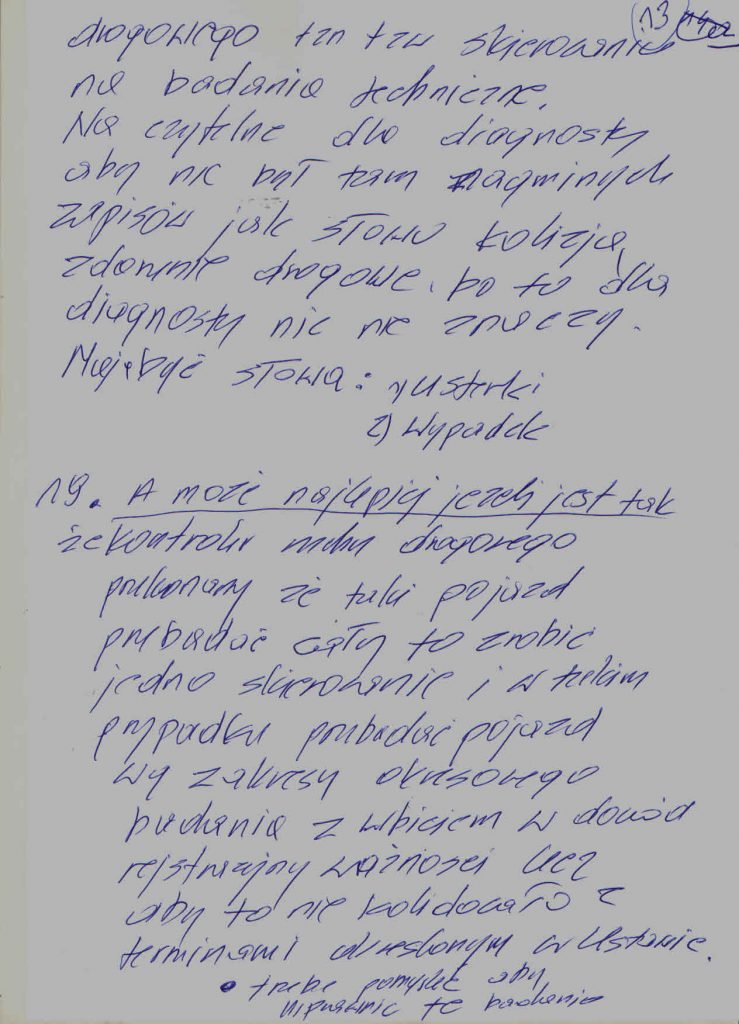 13
drogowego tzn tzw skierowanie
na badania techniczne.
Na czytelne dla diagnosty
aby nie był tam nagminych
zapisów jak słowo kolizja,
zdarznie drogowe. bo to dla
diagnosty nic nie znaczy.
Mają być słowa: 1) Usterki
2) Wypadek
19. A może najlepiej jeżeli jest tak
że kontroler ruchu drogowego
prekonany że taki pojazd
prebadać cały to zrobić
jedno skierowanie i w takim
przypadku prebadać pojazd
wg zakresy okresowego
badania z wbiciem w dowód
rejstracyjny ważnosci lecz
aby to nie kolidowało z
terminami okreslonym w Ustawie.
• trzeba pomysleć aby
te badania